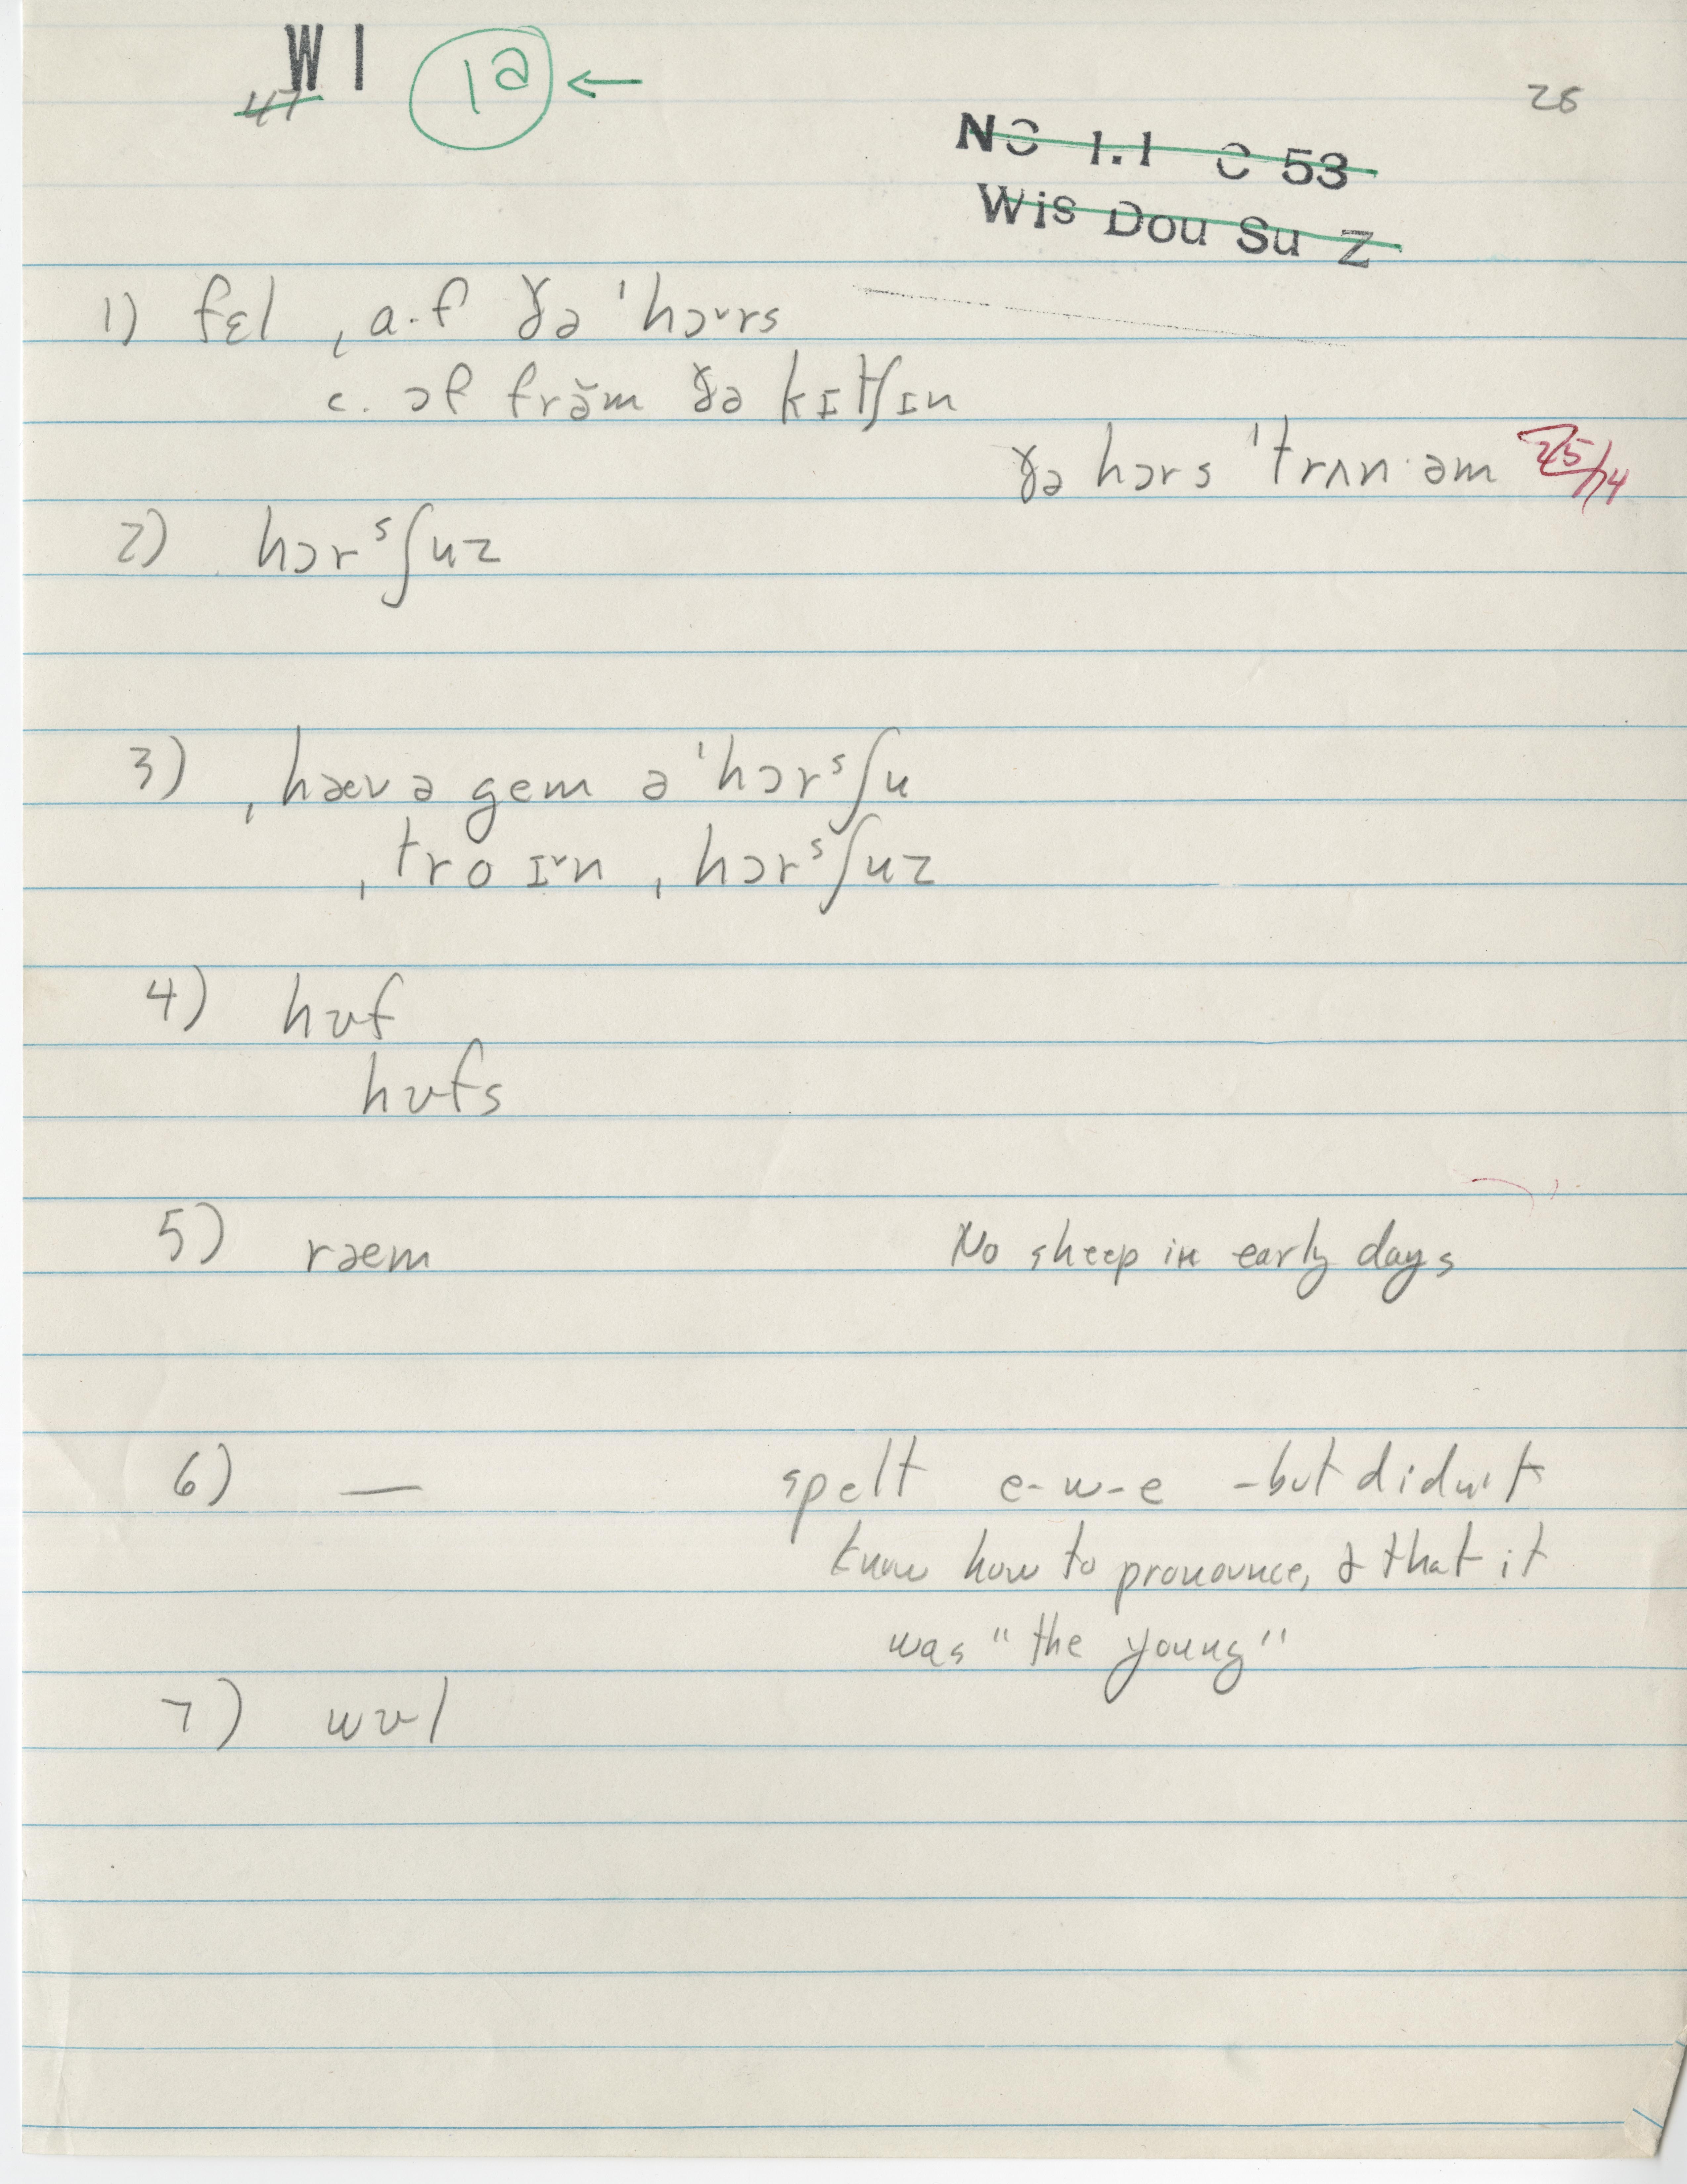 W1 1a ←
47
28
NC 1.1 C 53
Wis Dou Su Z
1) fɛl ˌɑ·f ðə ˈhɔ˅rs
c. ɔf frə̆m ðə kɪtʃɪn
ðə hɔrs ˈtrʌn·əm 25/14
2) hɔrˢʃuz
3) ˌhæv ə gem ə ˈhɔrˢʃu
ˌtro ɪ˅n ˌhɔrˢʃuz
4) hʊf
hʊfs
5) ræm No sheep in early days
6) — spelt e-w-e - but didn't
know how to pronounce, & that it
was "the young"
7) wʊl